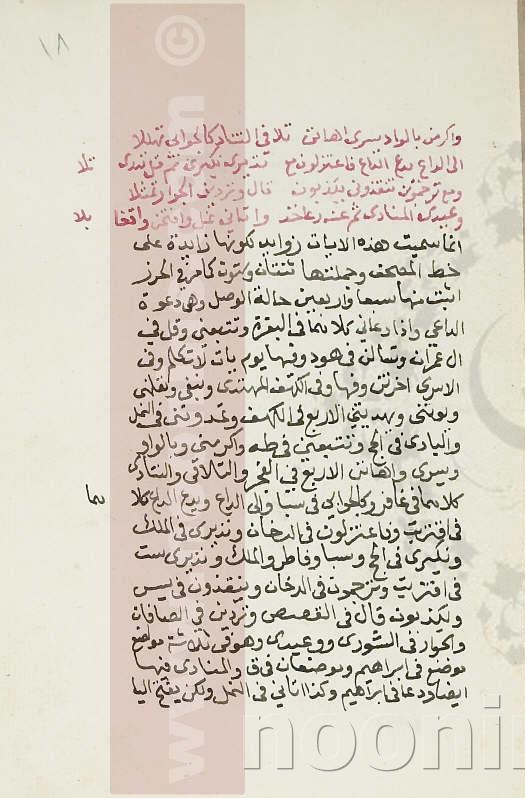 ١٨
واكرمن بالواد يسري اهانن تلاقي التناد كالجوابي تهللا
الى الداع يدع الداع فاعتزلون مع نذيري نكيري ثم قل نذري تلا
ومع ترجمون ينقذوني يكذبون قال وتردين الجوار تمثلا
وعيدي المنادي ثم عنه
انما سميت هذه الايات زوايد لكونها زايدة على
خط المصحف وجملتها ثنتان وستون كما مر في الحرز
اثبت منها سبعا واربعين حالة الوصل وهي دعوة
الداعي واذا دعاني كلاهما في البقرة وتتبعني وقل في
ال عمران وتسالن في هود وفيها يوم يات لا تكلم وفي
الاسرى اخرتن وفيها وفي الكهف المهتدي ونبغي ويعلمني
ويوتيني ويهديني الاربع في الكهف وتمدونني في النمل
والبادي في الحج وتتبعني في طه واكرمني وبالواد
ويسري واهانن الاربع في الفجر والتلاقي والتنادي
كلاهما في غافر وكالجوابي في سبا والى الداع ويدع الداع كلا هما
في اقتربت وفاعتزلون في الدخان ونذيري في الملك
ونكيري في الحج وسبا وفاطر والملك ونذري ست
في اقتربت وترجمون في الدخان وينقذون في يس
ويكذبون قال في القصص وتردين في الصافات
والجوار في الشورى ووعيدي وهو في ثلاثة مواضع
موضع في ابراهيم وموضعان في ق والمنادي فيها
ايضا ودعا في ابراهيم وكذا اتاني في النمل ولكن يفتح اليا
noonin